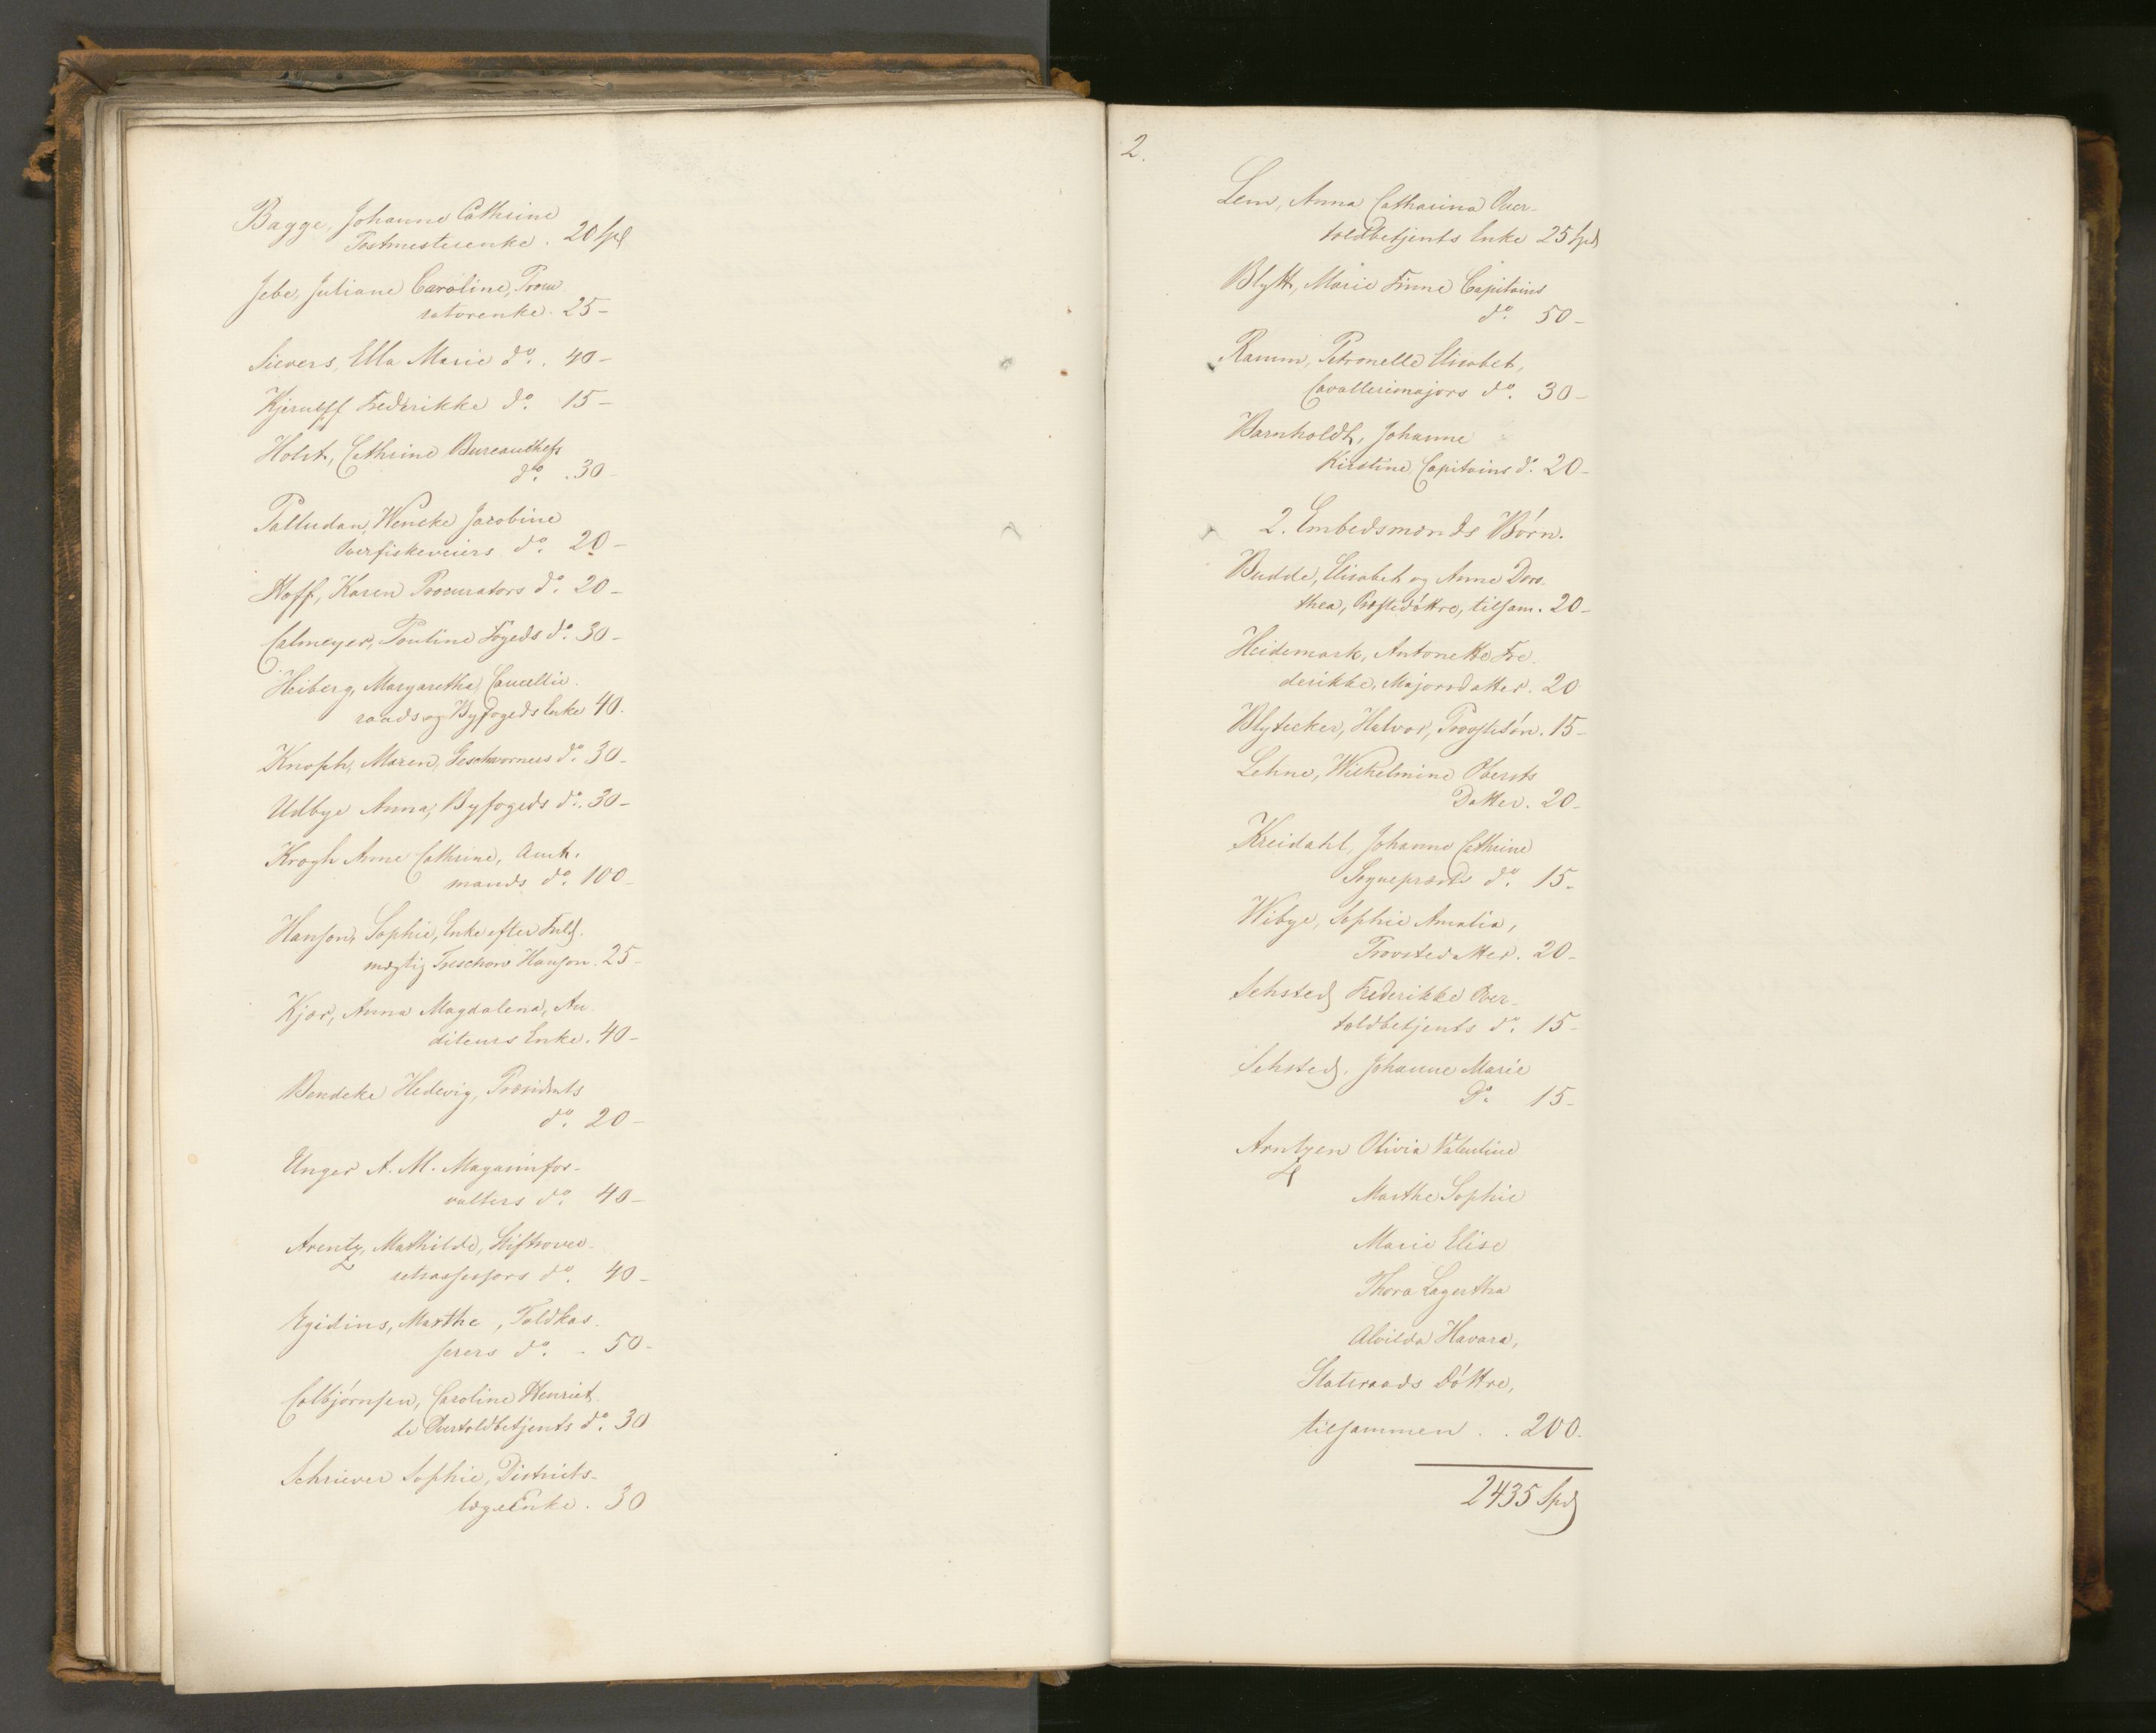 Bagge, Johanne Cathrine
Postmesterenke. 20 Spd
Jebe, Juliane Caroline, Procu-
ratorenke. 25-
Sievers, Ella Marie do. 40-
Kjerulff Frederikke do. 15-
Holst, Cathrine Bureauchefs
do. 30-
Palludan, Wencke Jacobine
Overfiskeveiers do. 20-
Hoff, Karen Procurators do. 20-
Calmeyer, Pouline Fogeds do. 30-
Heiberg, Margaretha, Cancellie-
raads og Byfogeds Enke 40.
Knoph, Maren, Geschworners do. 30-
Udbye Anna, Byfogeds do. 30-
Krogh Anne Cathrine, Amt-
mands do. 100-
Hanson, Sophie, Enke efter Fuld-
mægtig Treschow Hanson. 25-
Kjær, Anna Magdalena, Au-
diteurs Enke. 40-
Bendeke Hedevig, Præsidents
do. 20-
Unger A. M. Magasinfor-
valters do. 40-
Arentz, Mathilde, Stiftsover-
retsassessors do. 40-
Egidius, Marthe, Toldkas-
serers do. 50-
Colbjørnsen, Caroline Henriet-
te Overtoldbetjents do. 30
Schriever Sophie, Districts-
læge Enke. 30
2.
Lem, Anna Catharina Over-
toldbetjents Enke 25 Spd
Blytt, Marie Finne Capitains
do. 50-
Ramm, Petronelle Elisabet,
Cavallerimajors do. 30-
Barnholdt, Johanne
Kirstine, Capitains do. 20-
2. Embedsmænds Børn.
Budde, Elisabet og Anne Doro-
thea, Præstedøttre, tilsam. 20-
Heidemark, Antonette Fre-
derikke, Majorsdatter. 20
Blytecker, Halvor, Provstesøn. 15-
Lehne, Wilhelmine Obersts
Datter. 20-
Kreidahl, Johanne Cathrine
Sognepræsts do. 15-
Wibye, Sophie Amalia,
Provstedatter. 20-
Sehsted, Frederikke Over-
toldbetjents do. 15-
Sehsted, Johanne Marie
Do. 15-
Arntzen Olivia Valentine
Marthe Sophie
Marie Elise
Thora Lagertha
Alvilda Havara,
Statsraads Døttre,
tilsammen . . 200.
2435 Spd